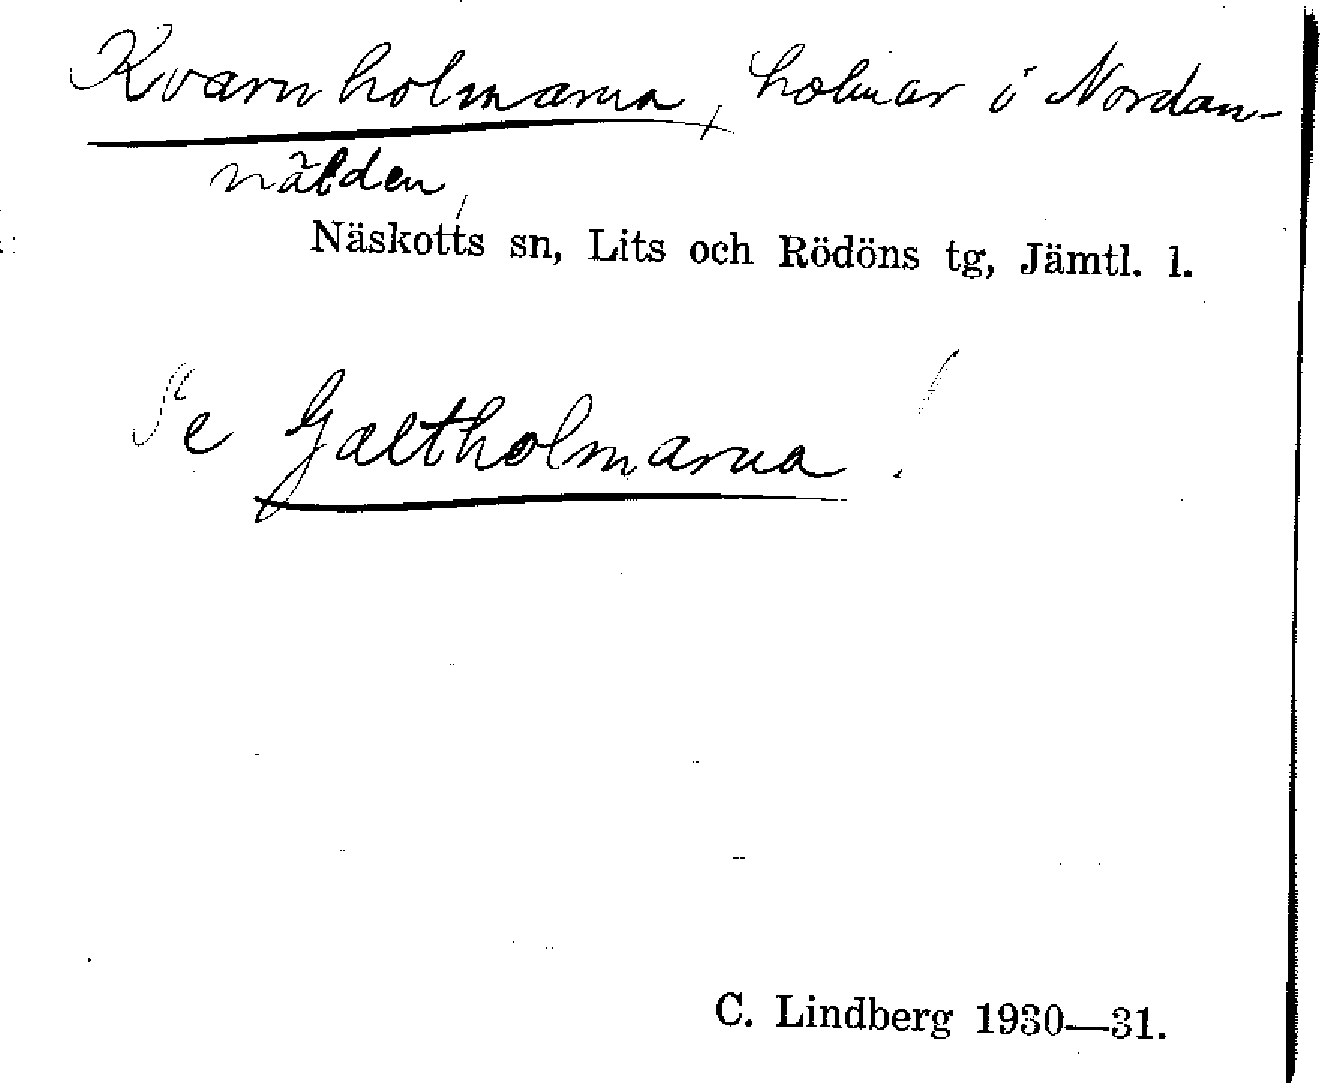 Kvarnholmarna, holmar i Nordan-
nälden,
Näskotts sn, Lits och Rödöns tg, Jämtl. l.
Se Galtholmarna!
C. Lindberg 1930—31.